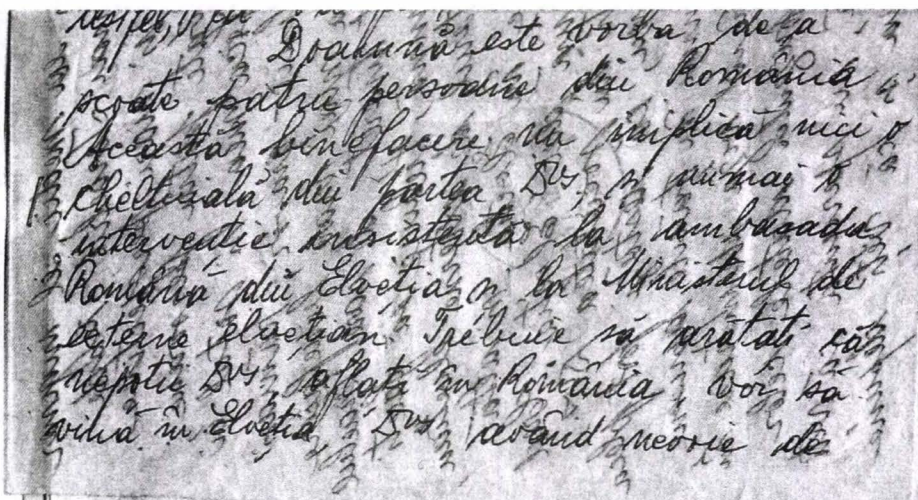 Doamnă este vorba de a
scoate patru persoane din România
Această binefacere nu implică nici o
cheltuială din partea Dvs, ci numai o
intervenție insistentă la ambasada
Română din Elveția și la Ministerul de
externe elvețian. Trebuie să arătați că
nepoții Dvs, aflați în România, voi să
vină în Elveția, Dvs având nevoie de